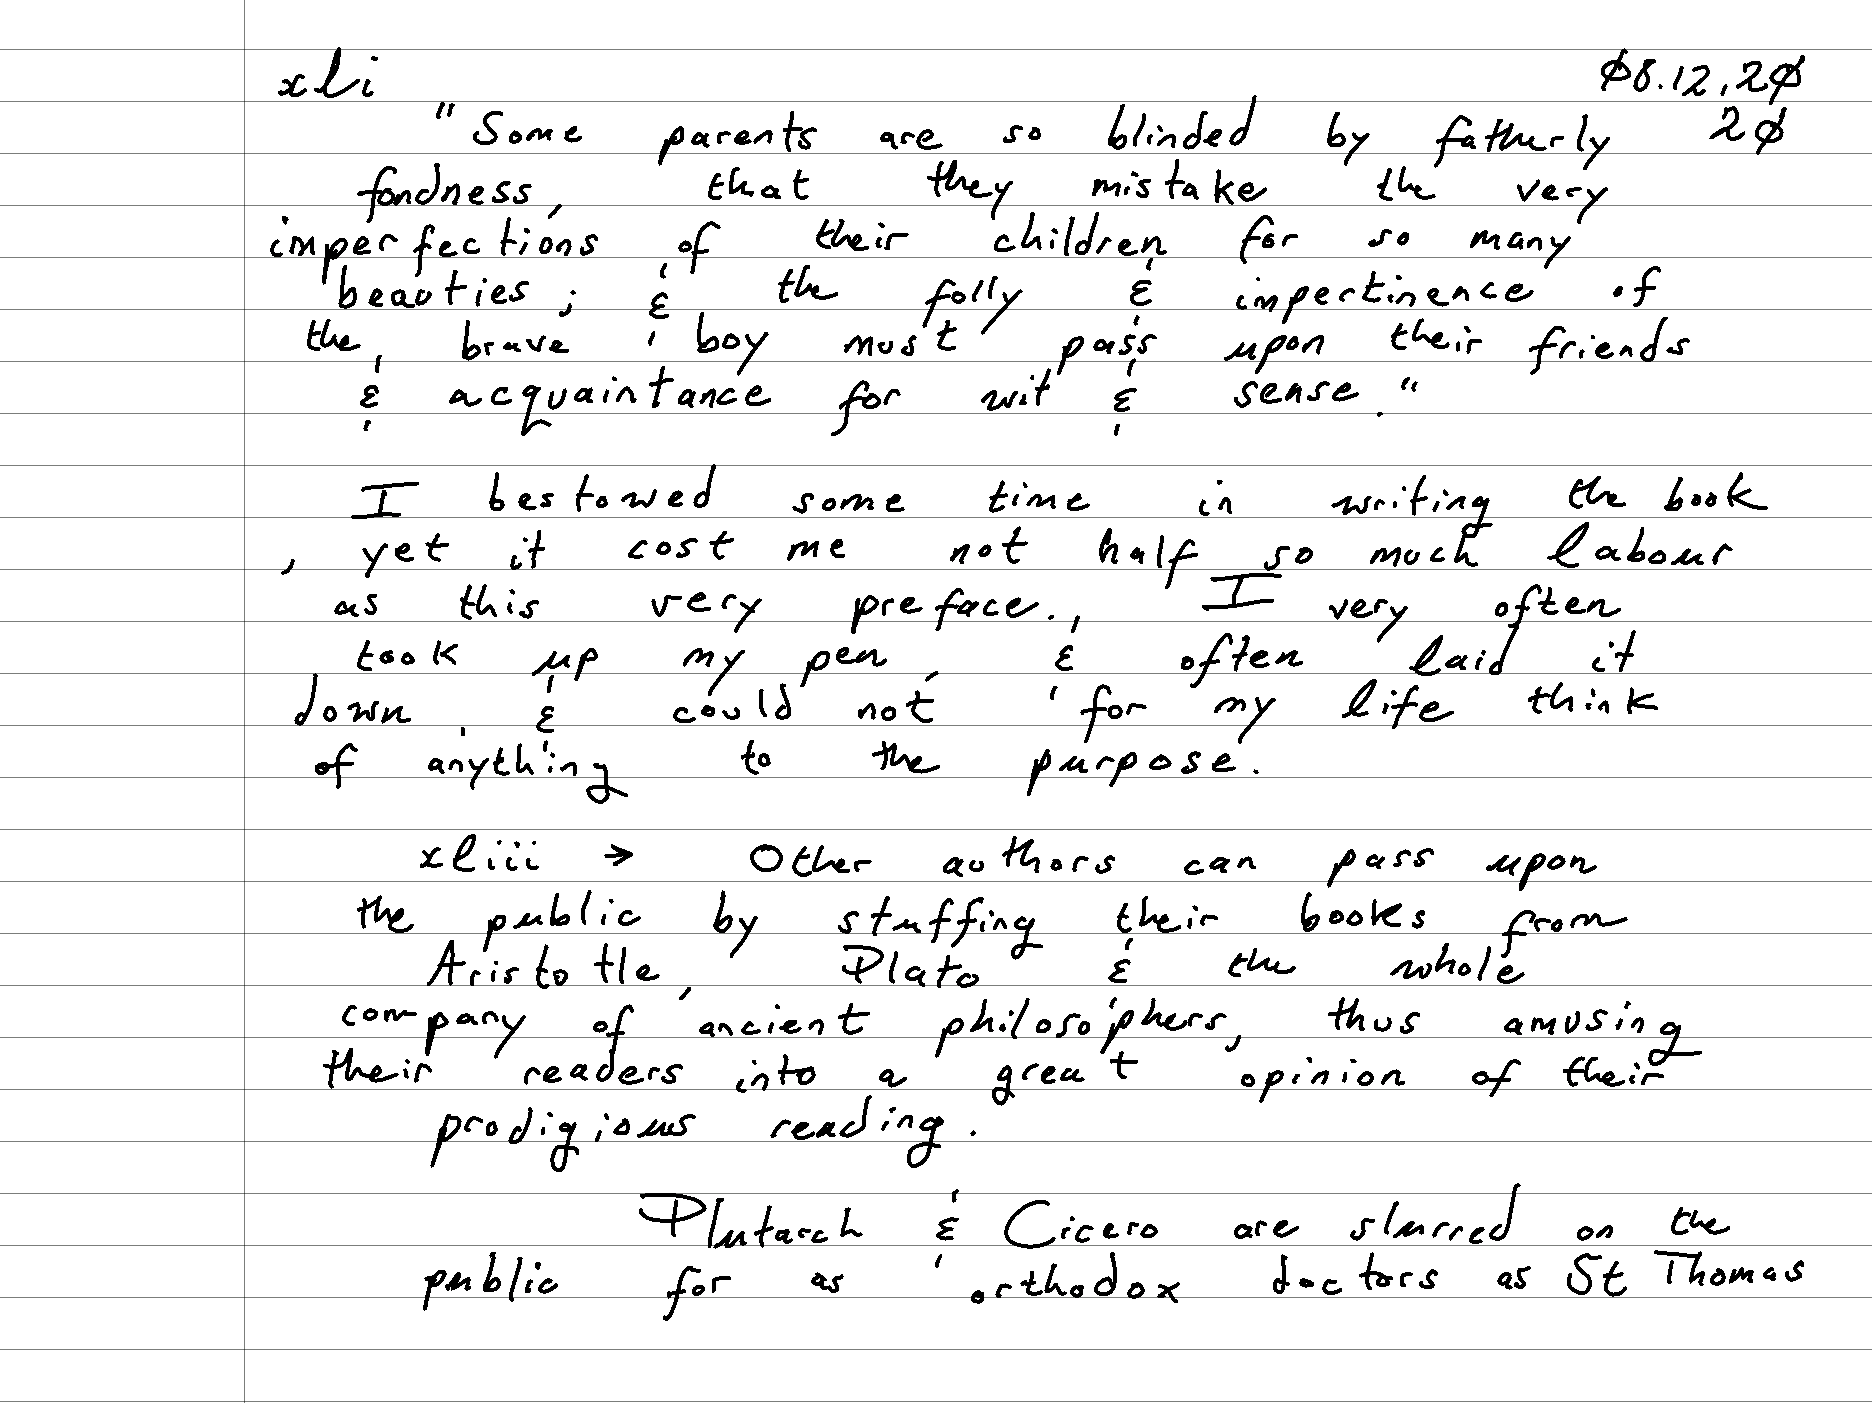 xli 08.12.20
"Some parents are so blinded by fatherly 20
fondness, that they mistake the very
imperfections of their children for so many
beauties; & the folly & impertinence of
the brave boy must pass upon their friends
& acquaintance for wit & sense."
I bestowed some time in writing the book
, yet it cost me not half so much labour
as this very preface. I very often
took up my pen, & often laid it
down, & could not for my life think
of anything to the purpose.
xliii → Other authors can pass upon
the public by stuffing their books from
Aristotle, Plato & the whole
company of ancient philosophers, thus amusing
their readers into a great opinion of their
prodigious reading.
Plutarch & Cicero are slurred on the
public for as orthodox doctors as St Thomas